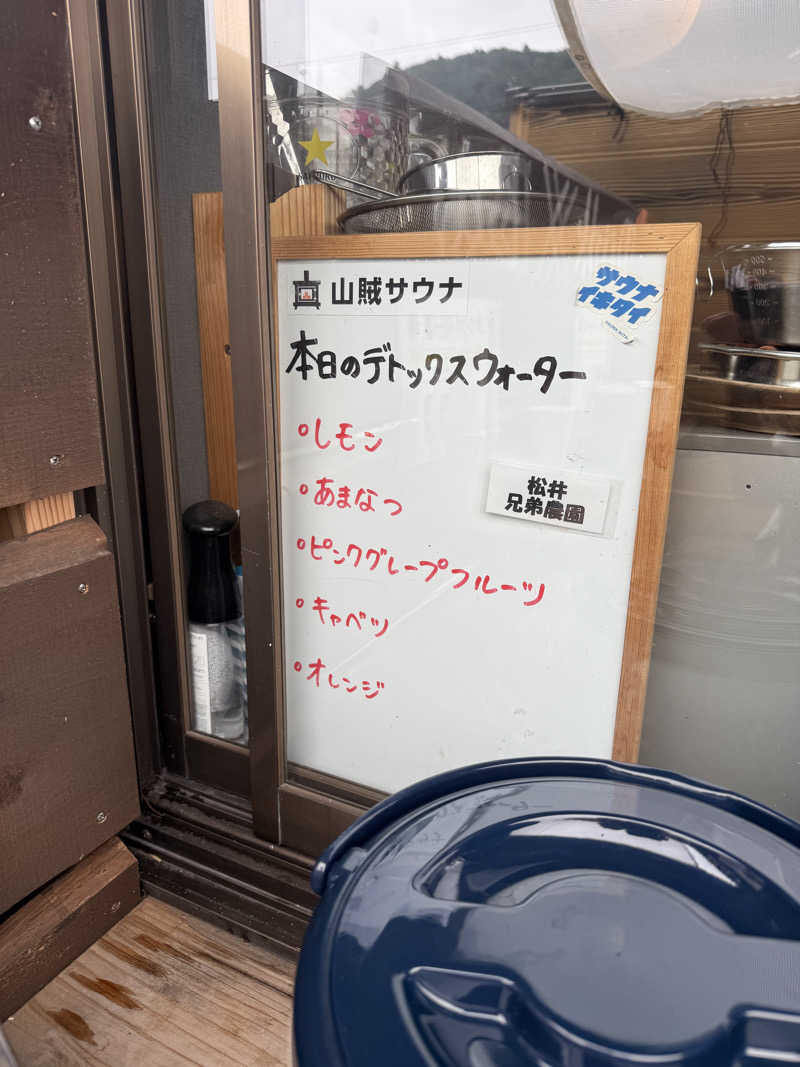 山賊サウナ
サウナ
イキタイ
本日のデトックスウォーター
・レモン
・あまなつ
松井
兄弟農園
・ピンクグレープフルーツ
・キャベツ
・オレンジ